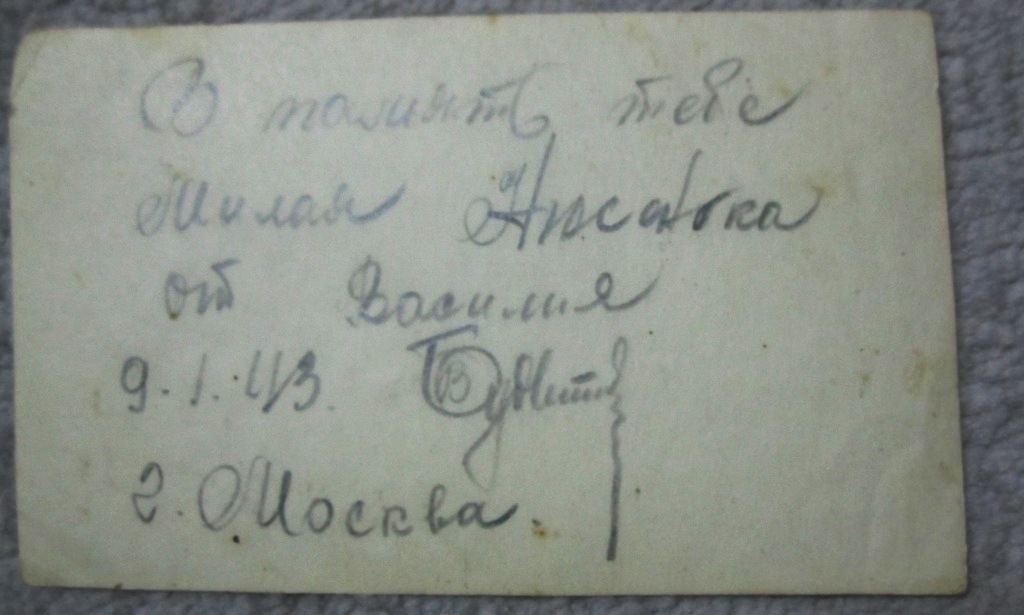 В память тебе
Милая Нюсенька
от Василия
9.1.43.
г. Москва.